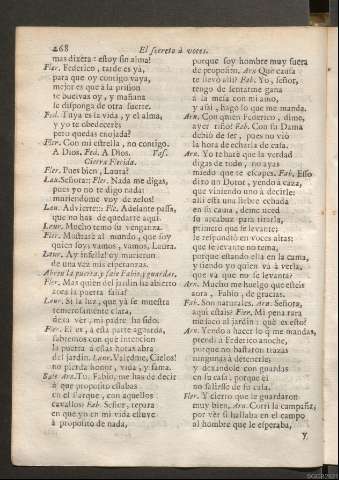 268 El secreto à voces.
mas dixera: estoy sin alma!
Fler. Federico, tarde es ya,
para que oy contigo vaya,
mejor es que à la prision
te buelvas oy, y mañana
se disponga de otra suerte.
Fed. Tuya es la vida, y el alma,
y yo te obedecerè:
pero quedas enojada?
Fler. Con mi estrella, no contigo.
A Dios. Fed. A Dios. Vas.
Cierra Flerida.
Fler. Pues bien, Laura?
Lau. Señora: Fler. Nada me digas,
pues yo no te digo nada:
muriendome voy de zelos!
Lau. Advierte:: Fle. Adelante passa,
que no has de quedarte aqui.
Laur. Mucho temo su venganza.
Fler. Mostrarè al mundo, que soy
quien soy: vamos, vamos, Laura.
Laur. Ay infeliz! oy murieron
de una vez mis esperanzas.
Abren la puerta, y sale Fabio, y guardas.
Fler. Mas quièn del jardin ha abierto
aora la puerta falsa?
Laur. Si la luz, que yà se muestra
temerosamente clara,
dexa vèr, mi padre ha sido.
Fler. El es, à esta parte aguarda,
sabremos con que intencion
la puerta à estas horas abra
del jardin. Laur. Valedme, Cielos!
no pierda honor, vida, y fama.
Sale Arn. Tu, Fabio, me has de decir
à que proposito estabas
en el Parque, con aquellos
cavallos? Fab. Señor, repara
en que yo en mi vida estuve
à proposito de nada,
porque soy hombre muy fuera
de proposito. Arn. Què causa
te llevò allí? Fab. Yo, señor,
tengo de sentarme gana
à la mesa con mi amo,
y assi, hago lo que me manda.
Arn. Con quièn Federico, dime,
ayer riñò? Fab. Con su Dama
debiò de ser, pues no viò
la hora de echarla de casa.
Arn. Yo te harè que la verdad
digas de todo, no ayas
miedo que te escapes. Fab. Esso
dixo un Dotor, yendo à caza,
que viendo uno à decirle:
allí està una liebre echada
en su cama, deme uced
su arcabuz para tirarla,
primero que se levante;
le respondiò en voces altas:
que se levante no tema,
porque estando ella en la cama,
y siendo yo quien và à verla,
que và que no se levanta?
Arn. Mucho me huelgo que esteis
aora, Fabio, de gracias.
Fab. Son naturales. Arn. Señora,
aqui estais? Fler. Mi pena rara
me sacò al jardin: què es esto?
Arn. Yendo à hacer lo q̃ me mandas,
prendì à Federico anoche,
porque no bastaron trazas
ningunas à detenerle;
y dexandole con guardas
en su casa, porque èl
no saliesse de su casa.
Fler. Y cierto que le guardaron
muy bien. Arn. Corrì la campaña,
por vèr si hallaba en el campo
al hombre que le espera­ba,
y